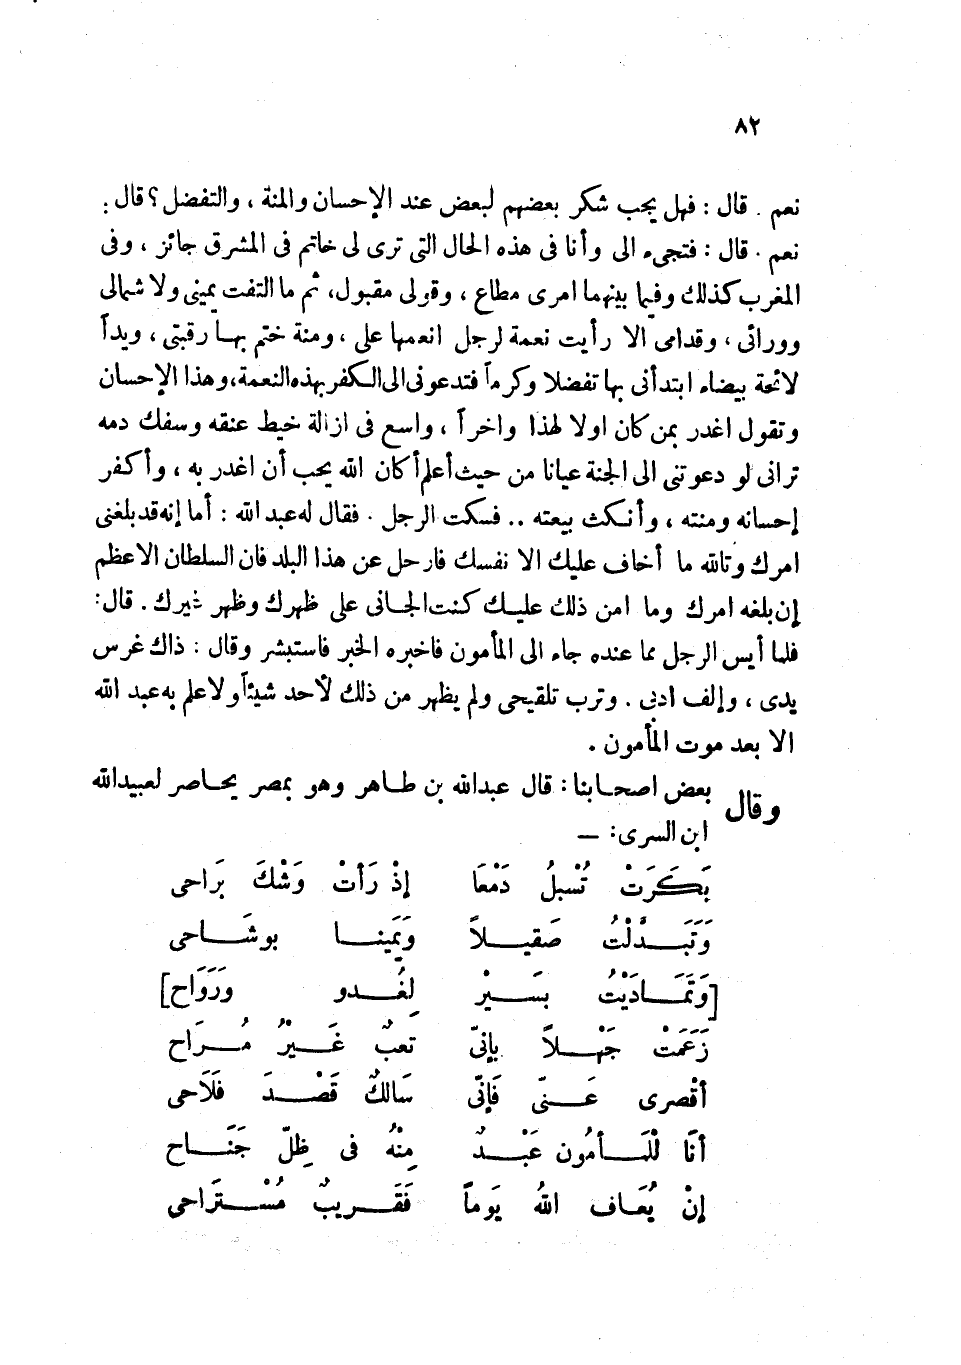 ٨٢
نعم . قال : فهل يجب شكر بعضهم لبعض عند الإحسان والمنة ، والتفضل ؟ قال :
نعم . قال : فتجىء الى وأنا فى هذه الحال التى ترى لى خاتم فى المشرق جائز ، وفى
المغرب كذلك وفيما بينهما امرى مطاع ، وقولى مقبول، ثم ما التفت يمينى ولا شمالى
وورائى ، وقدامى الا رأيت نعمة لرجل انعمها على ، ومنة ختم بها رقبتى ، ويداً
لائحة بيضاء ابتدأنى بها تفضلا وكرماً فتدعونى الى الكفر بهذه النعمة، وهذا الإحسان
وتقول اغدر بمن كان اولا لهذا واخراً ، واسع فى ازالة خيط عنقه وسفك دمه
ترانى لو دعوتنى الى الجنة عيانا من حيث أعلم أكان الله يحب أن اغدر به ، وأكفر
إحسانه ومنته ، وأنكث بيعته .. فسكت الرجل . فقال له عبد الله : أما إنه قد بلغنى
امرك وتالله ما أخاف عليك الا نفسك فارحل عن هذا البلد فان السلطان الاعظم
إن بلغه امرك وما امن ذلك عليك كنت الجانى على ظهرك وظهر غيرك . قال :
فلما أيس الرجل مما عنده جاء الى المأمون فاخبره الخبر فاستبشر وقال : ذاك غرس
يدى ، وإلف ادبى . وترب تلقيحى ولم يظهر من ذلك لأحد شيئاً ولا علم به عبد الله
الا بعد موت المأمون .
وقال بعض اصحابنا : قال عبدالله بن طاهر وهو بمصر يحاصر لعبيدالله
ابن السرى : —
بَكَرَتْ تُسْبلُ دَمْعَا إذْ رَأتْ وَشْكَ بَراحى
وَتَبَدَّلْتُ صَقيلاً وَيَمينا بوشَاحى
[وَتَمَادَيْتُ بسَيْرٍ لِغُدو ورَوَاح]
زَعَمَتْ جَهْلاً بإنىّ تعبٌ غَيْرُ مُرَاح
أقْصرى عَنىّ فَإنىّ سَالكٌ قَصْدَ فَلَاحى
أنَا لْلمَأمُون عَبْدٌ مِنْهُ فى ظِلّ جَنَاح
إنْ يُعَاف اللهُ يَوماً فَقَريبٌ مُسْتَراحى